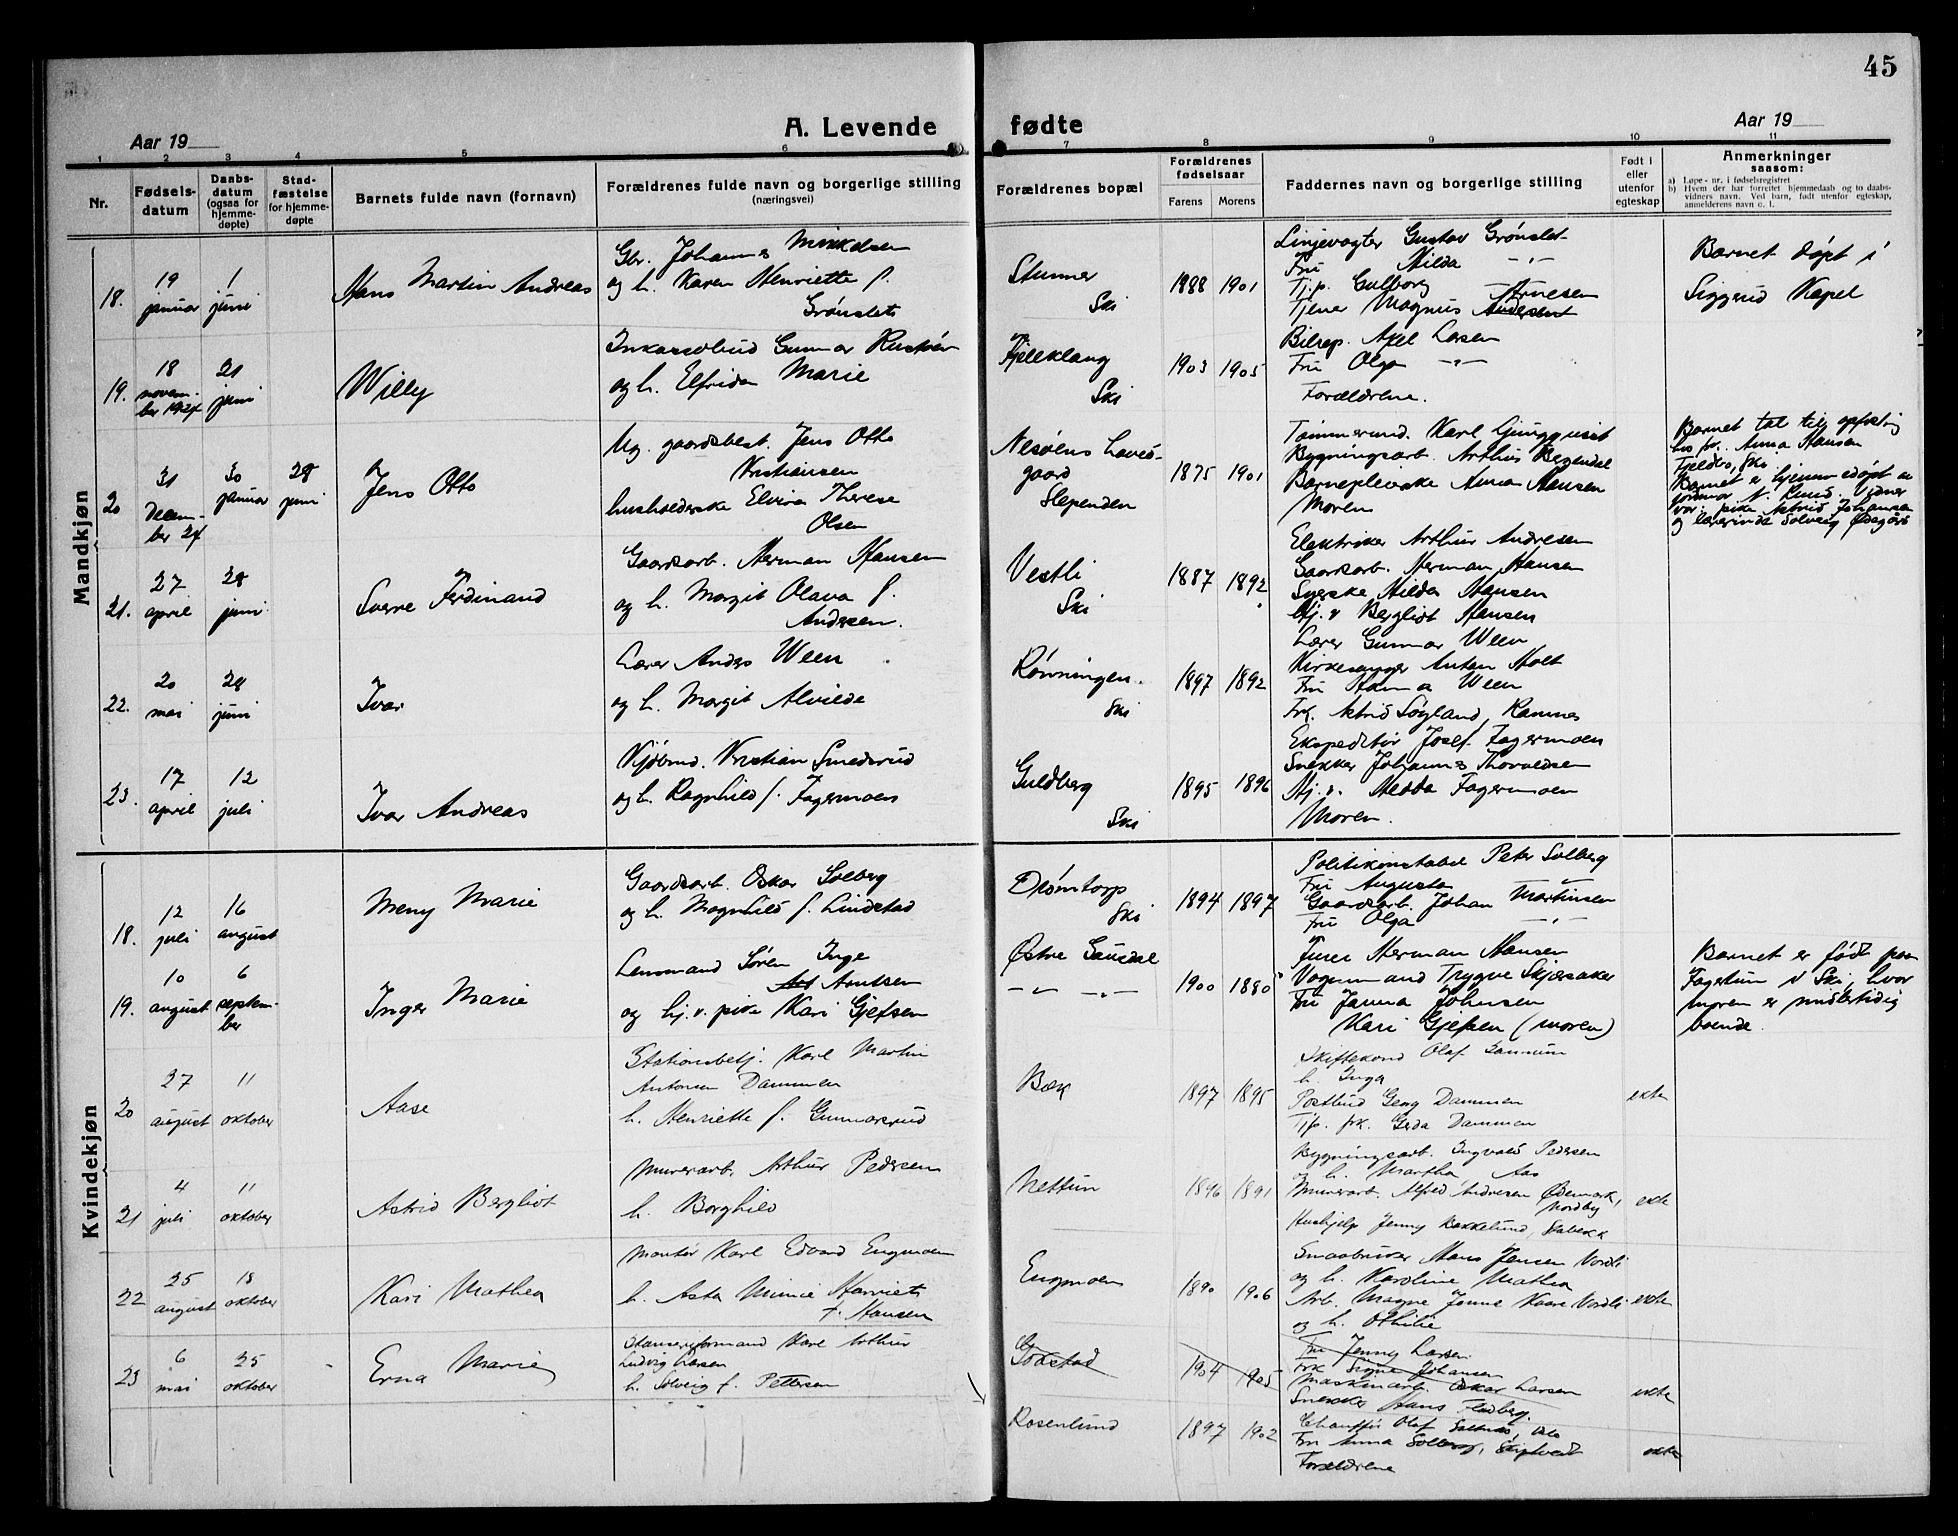 45
A. Levende
fødte
Aar 19
Aar 19
1 2 3 4 5 6 7 8 9 10 11
Nr.
Fødsels-
datum
Daabs-
datum
(ogsaa for
hjemme-
døpte)
Stad-
fæstelse
for hjemme-
døpte
Barnets fulde navn (fornavn)
Forældrenes fulde navn og borgerlige stilling
(næringsvei)
Forældrenes bopæl
Forældrenes
fødselsaar
Farens Morens
Faddernes navn og borgerlige stilling
Født i
eller
utenfor
egteskap
Anmerkninger
saasom:
a) Løpe-nr. i fødselsregistret
b) Hvem der har forrettet hjemmedaab og to daabs-
vidners navn. Ved barn, født utenfor egteskap,
anmelderens navn o. l.
Mandkjøn
18.
19
januar
1
juni
Hans Martin Andreas
Gbr. Johannes Mikkelsen
og h. Karen Henriette f.
Grønslet
Stunner
Ski
1888 1901
Linjevogter Gustav Grønslet
Fru Hilda -"-
Tj.p. Gulborg
Tjener Magnus Arnesen
Andersen
Barnet døpt i
Siggerud Kapel
19.
18
novem-
ber 1924
21
juni
Willy
Inkassobud Gunnar
og h. Elfrida Marie
Ski
1903 1905
Bilrep. Axel Larsen
Fru Olga -"-
Forældrene.
20
31
Decem-
ber 24
30
januar
28
juni
Jens Otto
Ug. gaardsbest. Jens Otto
Kristiansen
husholderske Elvira Therese
Olsen
Nesøens Hoved-
gaard
Slependen
1875 1901
Tømmermd. Karl Ljungquist
Bygningsarb. Arthur
Barnepleierske Anna Hansen
Moren
Barnet tat til opfostring
hos fr. Anna Hansen
Fjeldbo, Ski
Barnet er hjemmedøpt av
jormor N. Rund. Vidner
var: pike Astrid Johansen
og lærerinde Solveig Ødegård
21.
27
april
28
juni
Sverre Ferdinand
Gaardsarb. Herman Hansen
og h. Margit Olava f.
Andersen.
Vestli
Ski
1887 1892
Elektriker Arthur Andresen
Gaardsarb. Herman Hansen
Syerske Hilda Hansen
Hj. v Bergliot Hansen
22.
20
mai
28
juni
Ivar
Lærer Anders Ween
og h. Margit Alvilde
Rønningen.
Ski
1897 1892
Lærer Gunnar Ween
Kirkesanger Anton Holt
Fru Hanna Ween
Frk. Astrid Søyland, Ramnes
23.
17
april
12
juli
Ivar Andreas
Kjøbmd. Kristian Smedsrud
og h. Ragnhild f. Fagermoen
Guldberg
Ski
1895 1896
Ekspeditør Josef Fagermoen
Snekker Johannes Thorvaldsen
Hj.v. Hedda Fagermoen
Moren.
Kvindekjøn
18.
12
juli
16
august
Meny Marie
Gaardsarb. Oskar Solberg
og h. Magnhild f. Lindstad
Drømtorp
Ski
1894 1897
Politikonstabel Peter Solberg
Fru Augusta -"-
Gaardsarb. Johan Martinsen
Fru Olga -"-
19.
10
august
6
septem-
ber
Inger Marie
Lensmand Søren Inge
Arntsen
og hj.v. pike Kari Gjefsen
Østre Gausdal
-"- -"-
1900 1880
Furer Herman Hansen
Vognmand Trygve Skjæsaker
Fru Janna Johnsen
Kari Gjefsen (moren)
Barnet er født paa
Fagertun v Ski, hvor
moren er midlertidig
boende.
20
27
august
11
oktober
Aase
Stationsbetj. Karl Martin
Antonsen Dammen
h. Henriette f. Gunnarsrud
Bæk
1897 1895
Skiftekond Olaf
h. Inga
Postbud Georg Dammen
Tjp. frk. Gerda Dammen
ekte
21
4
juli
11
oktober
Astrid Bergliot
Murerarb. Arthur Pedersen
h. Borghild
Nettun
1896 1891
Bygningsarb. Ingvald Pedersen
h. Martha Aas
Murerarb. Alfred Andresen Ødemark,
Nordby
Hushjelp Jenny Bakkelund, Stabekk
ekte
22
25
august
18
oktober
Kari Mathea
Montør Karl Edvard Engmoen
h. Asta Minnie Harriet
f. Hansen
Engmoen
1890 1906
Smaabruker Hans Jensen Vordli
og h. Karoline Mathea
Arb. Magne Kaare Vordli
og h. Othilie
ekte
23
6
mai
25
oktober
Erna Marie
Stanseriformand Karl Arthur
Ludvig Larsen
h. Solveig f. Pettersen
Godstad
1904 1905
Fru Jenny Larsen
Frk Signe Johansen
Maskinarb. Oskar Larsen
Snekker Hans Fladberg.
ekte
Rosenlund
1897 1902
Chauffør Olaf Solberg, Oslo
Fru Anna Solberg, Skiptvedt
Forældrene
ekte